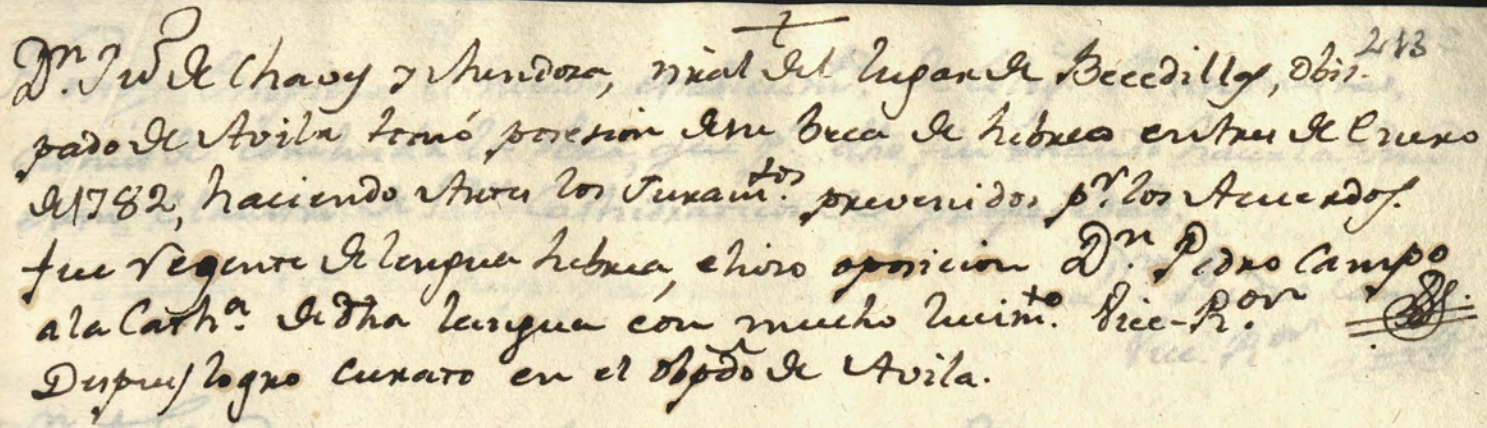 213
Dn. Juo de Chaves y Mendoza, nral del lugar de Becedillas, obis-
pado de Avila tomó posesion de su beca de hebreo en tres de Enero
de 1782, haciendo Antes los Juramtos. prevenidos pr. los Acuerdos.
fue Regente de lengua hebrea, e hizo oposicion Dn. Pedro Campo
a la Catha. de dha lengua con mucho lucimto. Vice-Ror.
Despues logro curato en el obpdo de Avila.